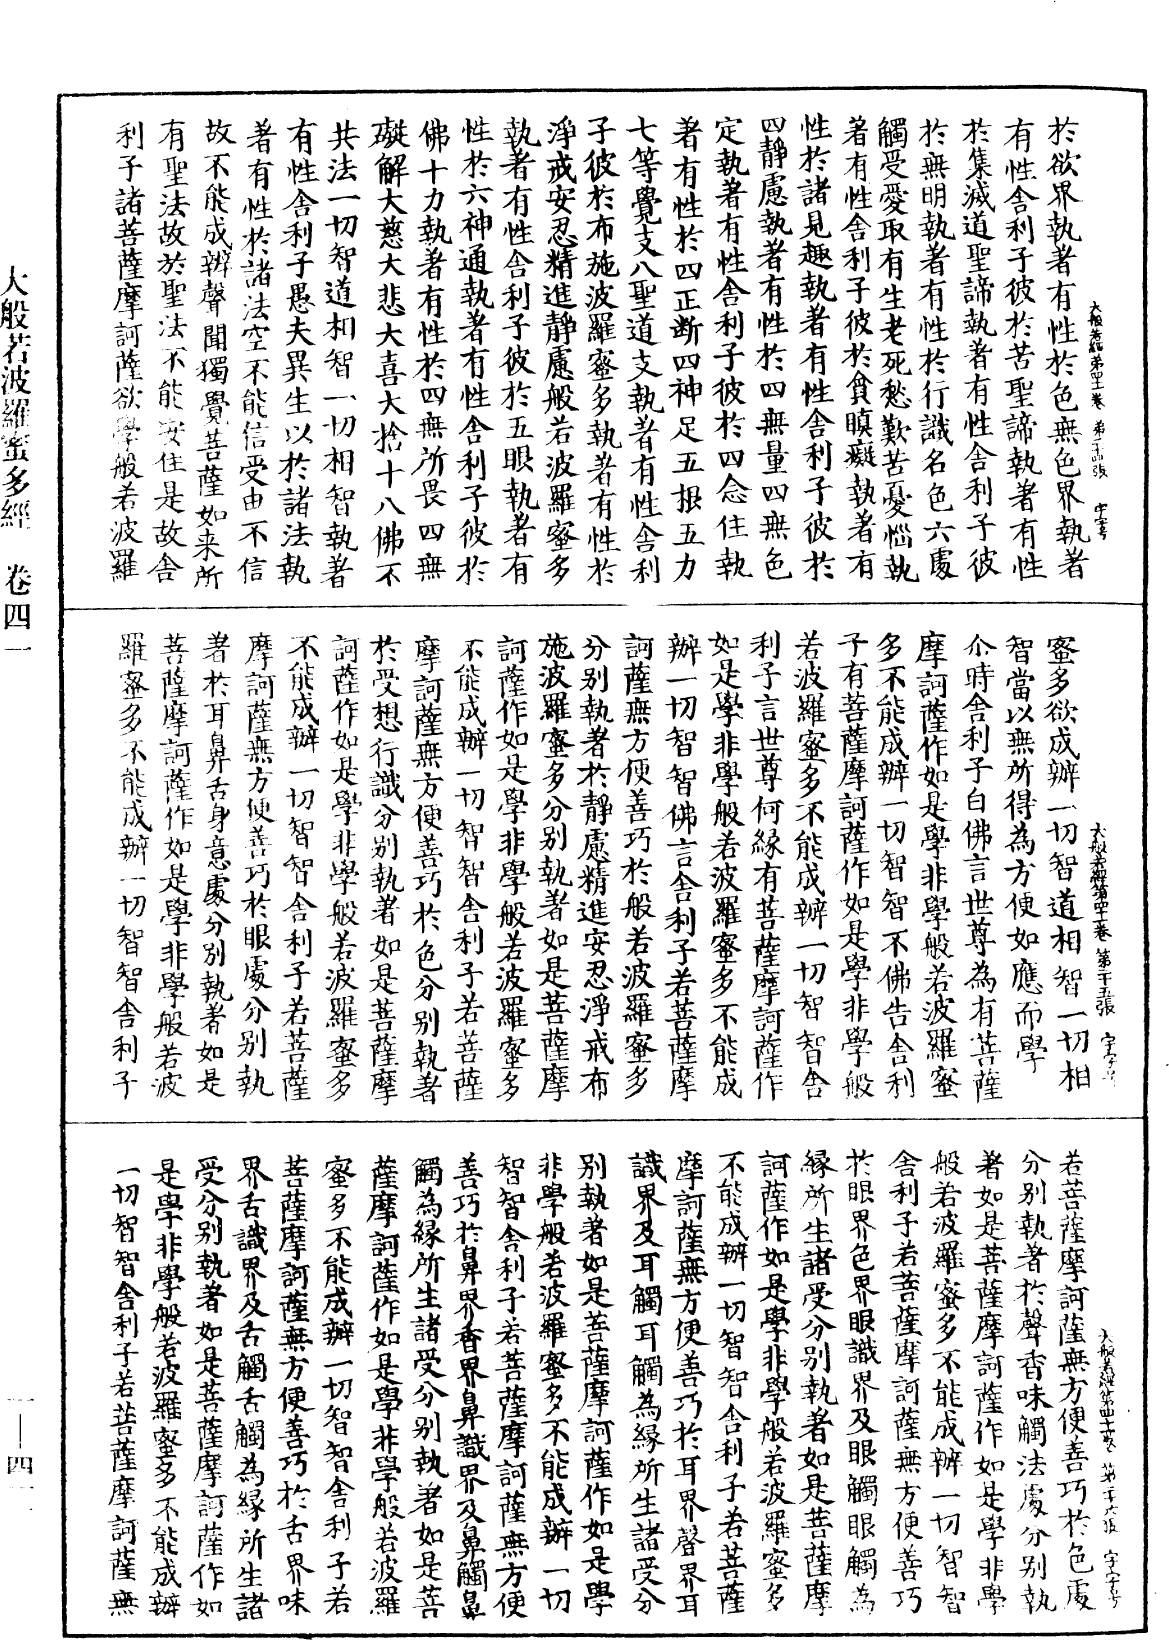 於欲界執著有性於色無色界執著
有性舍利子彼於苦聖諦執著有性
於集滅道聖諦執著有性舍利子彼
於無明執著有性於行識名色六處
觸受愛取有生老死愁歎苦憂惱執
著有性舍利子彼於貪瞋癡執著有
性於諸見趣執著有性舍利子彼於
四靜慮執著有性於四無量四無色
定執著有性舍利子彼於四念住執
著有性於四正斷四神足五根五力
七等覺支八聖道支執著有性舍利
子彼於布施波羅蜜多執著有性於
淨戒安忍精進靜慮般若波羅蜜多
執著有性舍利子彼於五眼執著有
性於六神通執著有性舍利子彼於
佛十力執著有性於四無所畏四無
礙解大慈大悲大喜大捨十八佛不
共法一切智道相智一切相智執著
有性舍利子愚夫異生以於諸法執
著有性於諸法空不能信受由不信
故不能成辨聲聞獨覺菩薩如来所
有聖法故於聖法不能安住是故舍
利子諸菩薩摩訶薩欲學般若波羅
大般若經第四十一卷 第二十四張 宇字号
蜜多欲成辨一切智道相智一切相
智當以無所得為方便如應而學
尒時舍利子白佛言世尊為有菩薩
摩訶薩作如是學非學般若波羅蜜
多不能成辨一切智智不佛告舍利
子有菩薩摩訶薩作如是學非學般
若波羅蜜多不能成辨一切智智舍
利子言世尊何緣有菩薩摩訶薩作
如是學非學般若波羅蜜多不能成
辨一切智智佛言舍利子若菩薩摩
訶薩無方便善巧於般若波羅蜜多
分別執著於靜慮精進安忍淨戒布
施波羅蜜多分別執著如是菩薩摩
訶薩作如是學非學般若波羅蜜多
不能成辨一切智智舍利子若菩薩
摩訶薩無方便善巧於色分別執著
於受想行識分別執著如是菩薩摩
訶薩作如是學非學般若波羅蜜多
不能成辨一切智智舍利子若菩薩
摩訶薩無方便善巧於眼處分別執
著於耳鼻舌身意處分別執著如是
菩薩摩訶薩作如是學非學般若波
羅蜜多不能成辨一切智智舍利子
大般若經第四十一卷 第二十五張 宇字号
若菩薩摩訶薩無方便善巧於色處
分別執著於聲香味觸法處分別執
著如是菩薩摩訶薩作如是學非學
般若波羅蜜多不能成辨一切智智
舍利子若菩薩摩訶薩無方便善巧
於眼界色界眼識界及眼觸眼觸為
緣所生諸受分別執著如是菩薩摩
訶薩作如是學非學般若波羅蜜多
不能成辨一切智智舍利子若菩薩
摩訶薩無方便善巧於耳界聲界耳
識界及耳觸耳觸為緣所生諸受分
別執著如是菩薩摩訶薩作如是學
非學般若波羅蜜多不能成辨一切
智智舍利子若菩薩摩訶薩無方便
善巧於鼻界香界鼻識界及鼻觸鼻
觸為緣所生諸受分別執著如是菩
薩摩訶薩作如是學非學般若波羅
蜜多不能成辨一切智智舍利子若
菩薩摩訶薩無方便善巧於舌界味
界舌識界及舌觸舌觸為緣所生諸
受分別執著如是菩薩摩訶薩作如
是學非學般若波羅蜜多不能成辨
一切智智舍利子若菩薩摩訶薩無
大般若經第四十一卷 第二十六張 宇字号
大般若波羅蜜多經 卷四一
一—四一一